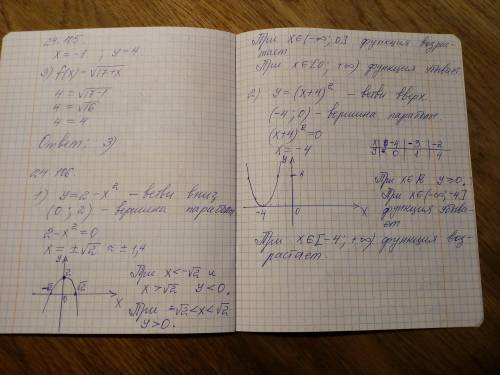 24.115.
x = -1 ; y = 4
3) f(x) = √17+x
4 = √17-1
4 = √16
4 = 4
Ответ: 3)
24.116.
1) y = 2 - x² - ветви вниз
(0; 2) - вершина парабол
2 - x² = 0
x = ± √2 ≈ ± 1,4
y
2
-√2 0 √2
x
При x < -√2 и
x > √2 y < 0.
При -√2 < x < √2
y > 0.
При x ∈ (-∞; 0] функция возрас-
тает
При x ∈ [0; +∞) функция убывает.
2) y = (x+4)² - ветви вверх
(-4; 0) - вершина парабол
(x+4)² = 0
x = -4
x -4 -3 -2
y 0 1 4
y
-4 0 x
При x ∈ R y ≥ 0.
При x ∈ (-∞; -4]
функция убыва-
ет
При x ∈ [-4; +∞) функция воз-
растает.